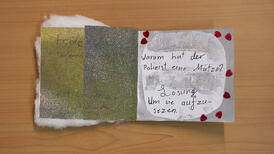 Warum hat der
Polizist eine Mütze?
Lösung
Um sie aufzu-
sezen.